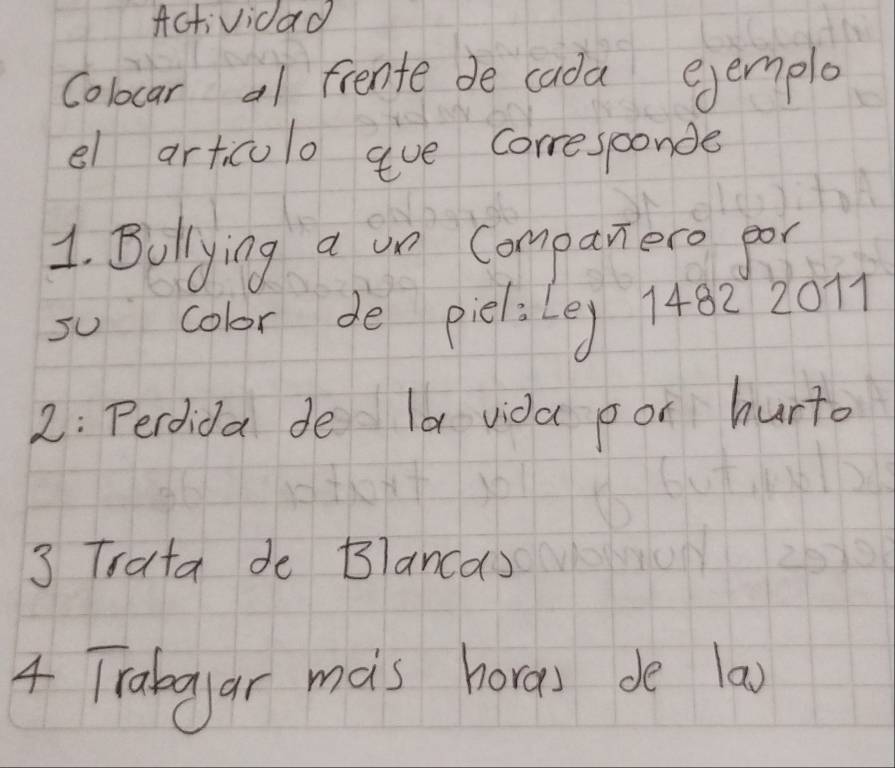 Actividad
Colocar al frente de cada ejemplo
el articulo que corresponde
1. Bullying a un Compañero por
su color de piel: Ley 1482 2011
2: Perdida de la vida por hurto
3 Trata de Blancas
4 Trabajar más horas de las